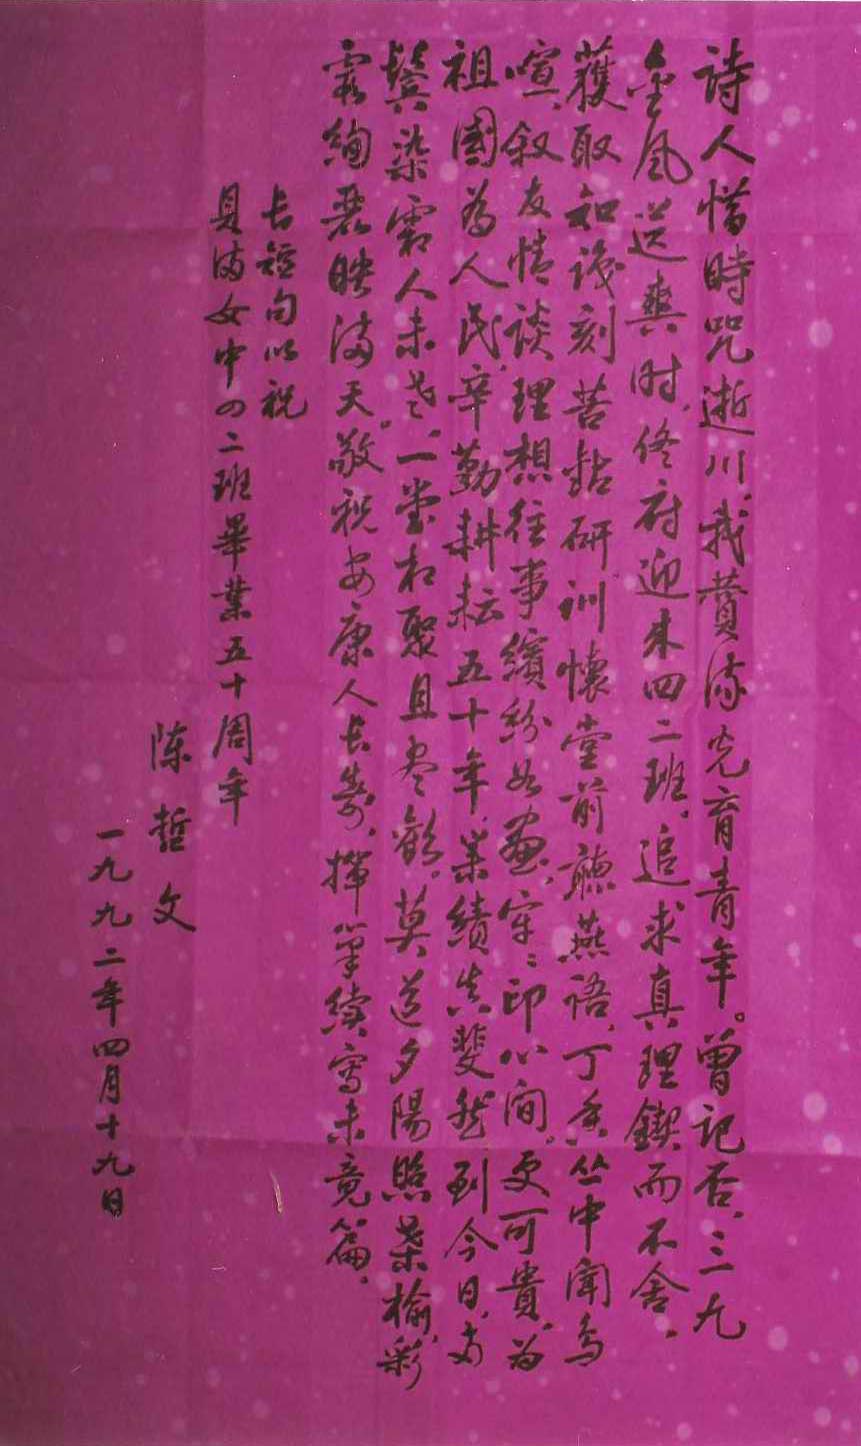 詩人惜時咒逝川。我贊流光育青年。曾記否、三九
金风送爽时、佟府迎来四二班、追求真理鍥而不舍、
獲取知識刻苦鉆研。训懷堂前聽燕语、丁香丛中闻鸟
喧、叙友情谈理想往事缤纷如画、牢〻印心间。更可貴、为
祖國為人民、辛勤耕耘五十年、業績真斐然。到今日、两
鬓染霜人未老、一堂相聚且尽歡。莫道夕陽照桑榆、彩
霞绚麗映滿天。敬祝安康人长寿、揮笔续寫未竟篇。
长短句以祝
貝滿女中四二班畢業五十周年
陈哲文
一九九二年四月十九日